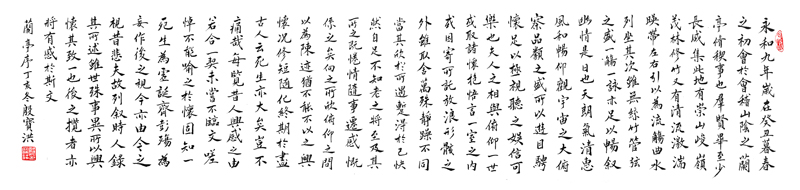 永和九年歲在癸丑暮春
之初會於會稽山陰之蘭
亭脩稧事也群賢畢至少
長咸集此地有崇山峻嶺
茂林修竹又有清流激湍
映帶左右引以為流觴曲水
列坐其次雖無絲竹管弦
之盛一觴一詠亦足以暢敘
幽情是日也天朗氣清惠
風和暢仰觀宇宙之大俯
察品類之盛所以遊目騁
懷足以極視聽之娛信可
樂也夫人之相與俯仰一世
或取諸懷抱悟言一室之內
或因寄所託放浪形骸之
外雖取舍萬殊靜躁不同
當其欣於所遇暫得於己快
然自足不知老之將至及其
所之既惓情隨事遷感慨
係之矣向之所欣俛仰之間
以為陳迹猶不能不以之興
懷況修短隨化終期於盡
古人云死生亦大矣豈不
痛哉每覽昔人興感之由
若合一契未嘗不臨文嗟
悼不能喻之於懷固知一
死生為虛誕齊彭殤為
妄作後之視今亦由今之
視昔悲夫故列敘時人錄
其所述雖世殊事異所以興
懷其致一也後之攬者亦
將有感於斯文
蘭亭序丁亥冬殷寶洪